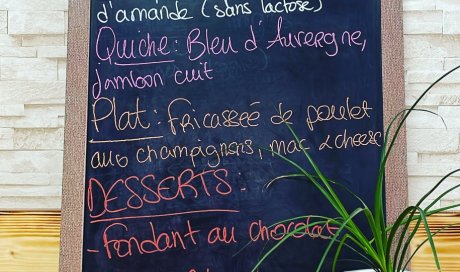 d'amande (sans lactose)
Quiche : Bleu d'Auvergne,
Jambon cuit
Plat : fricasseé de poulet
aux champignons, mac & cheese
DESSERTS :
- fondant au chocolat